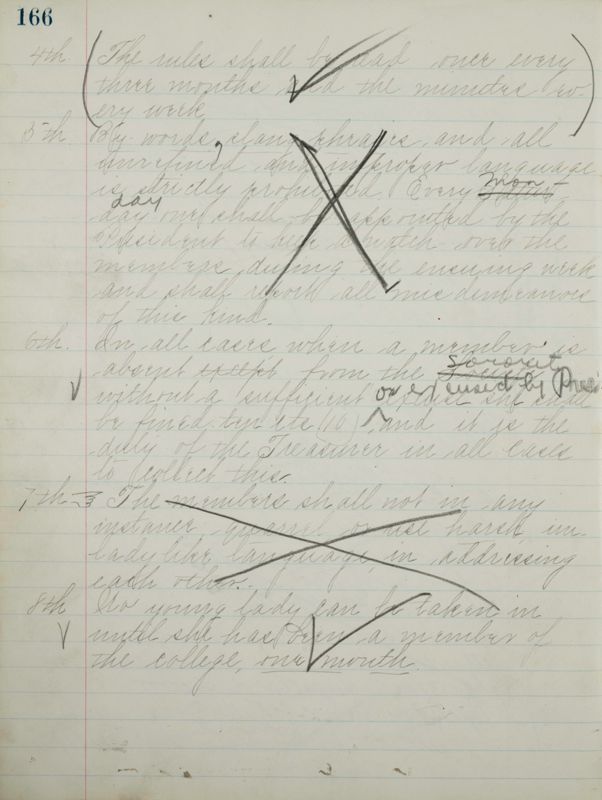 166
4th. (The rules shall be read once every
three months and the minutes ev
ery week)
5th. By words, slang phrases and all
unrefined and improper language
is strictly prohibited. Every Mon
day one shall be appointed by the
President to keep watch over the
members during the ensuing week
and shall report all misdemeanors
of this kind.
6th. In all cases when a member is
absent except from the Sorority
without a sufficient excuse she shall
or excused by Pres
be fined ten cts (10) and it is the
duty of the Treasurer in all cases
to collect this.
7th 3 The members shall not in any
instance quarrel or use harsh, un
lady like language, in addressing
each other.
8th No young lady can be taken in
until she has been a member of
the college, one month.